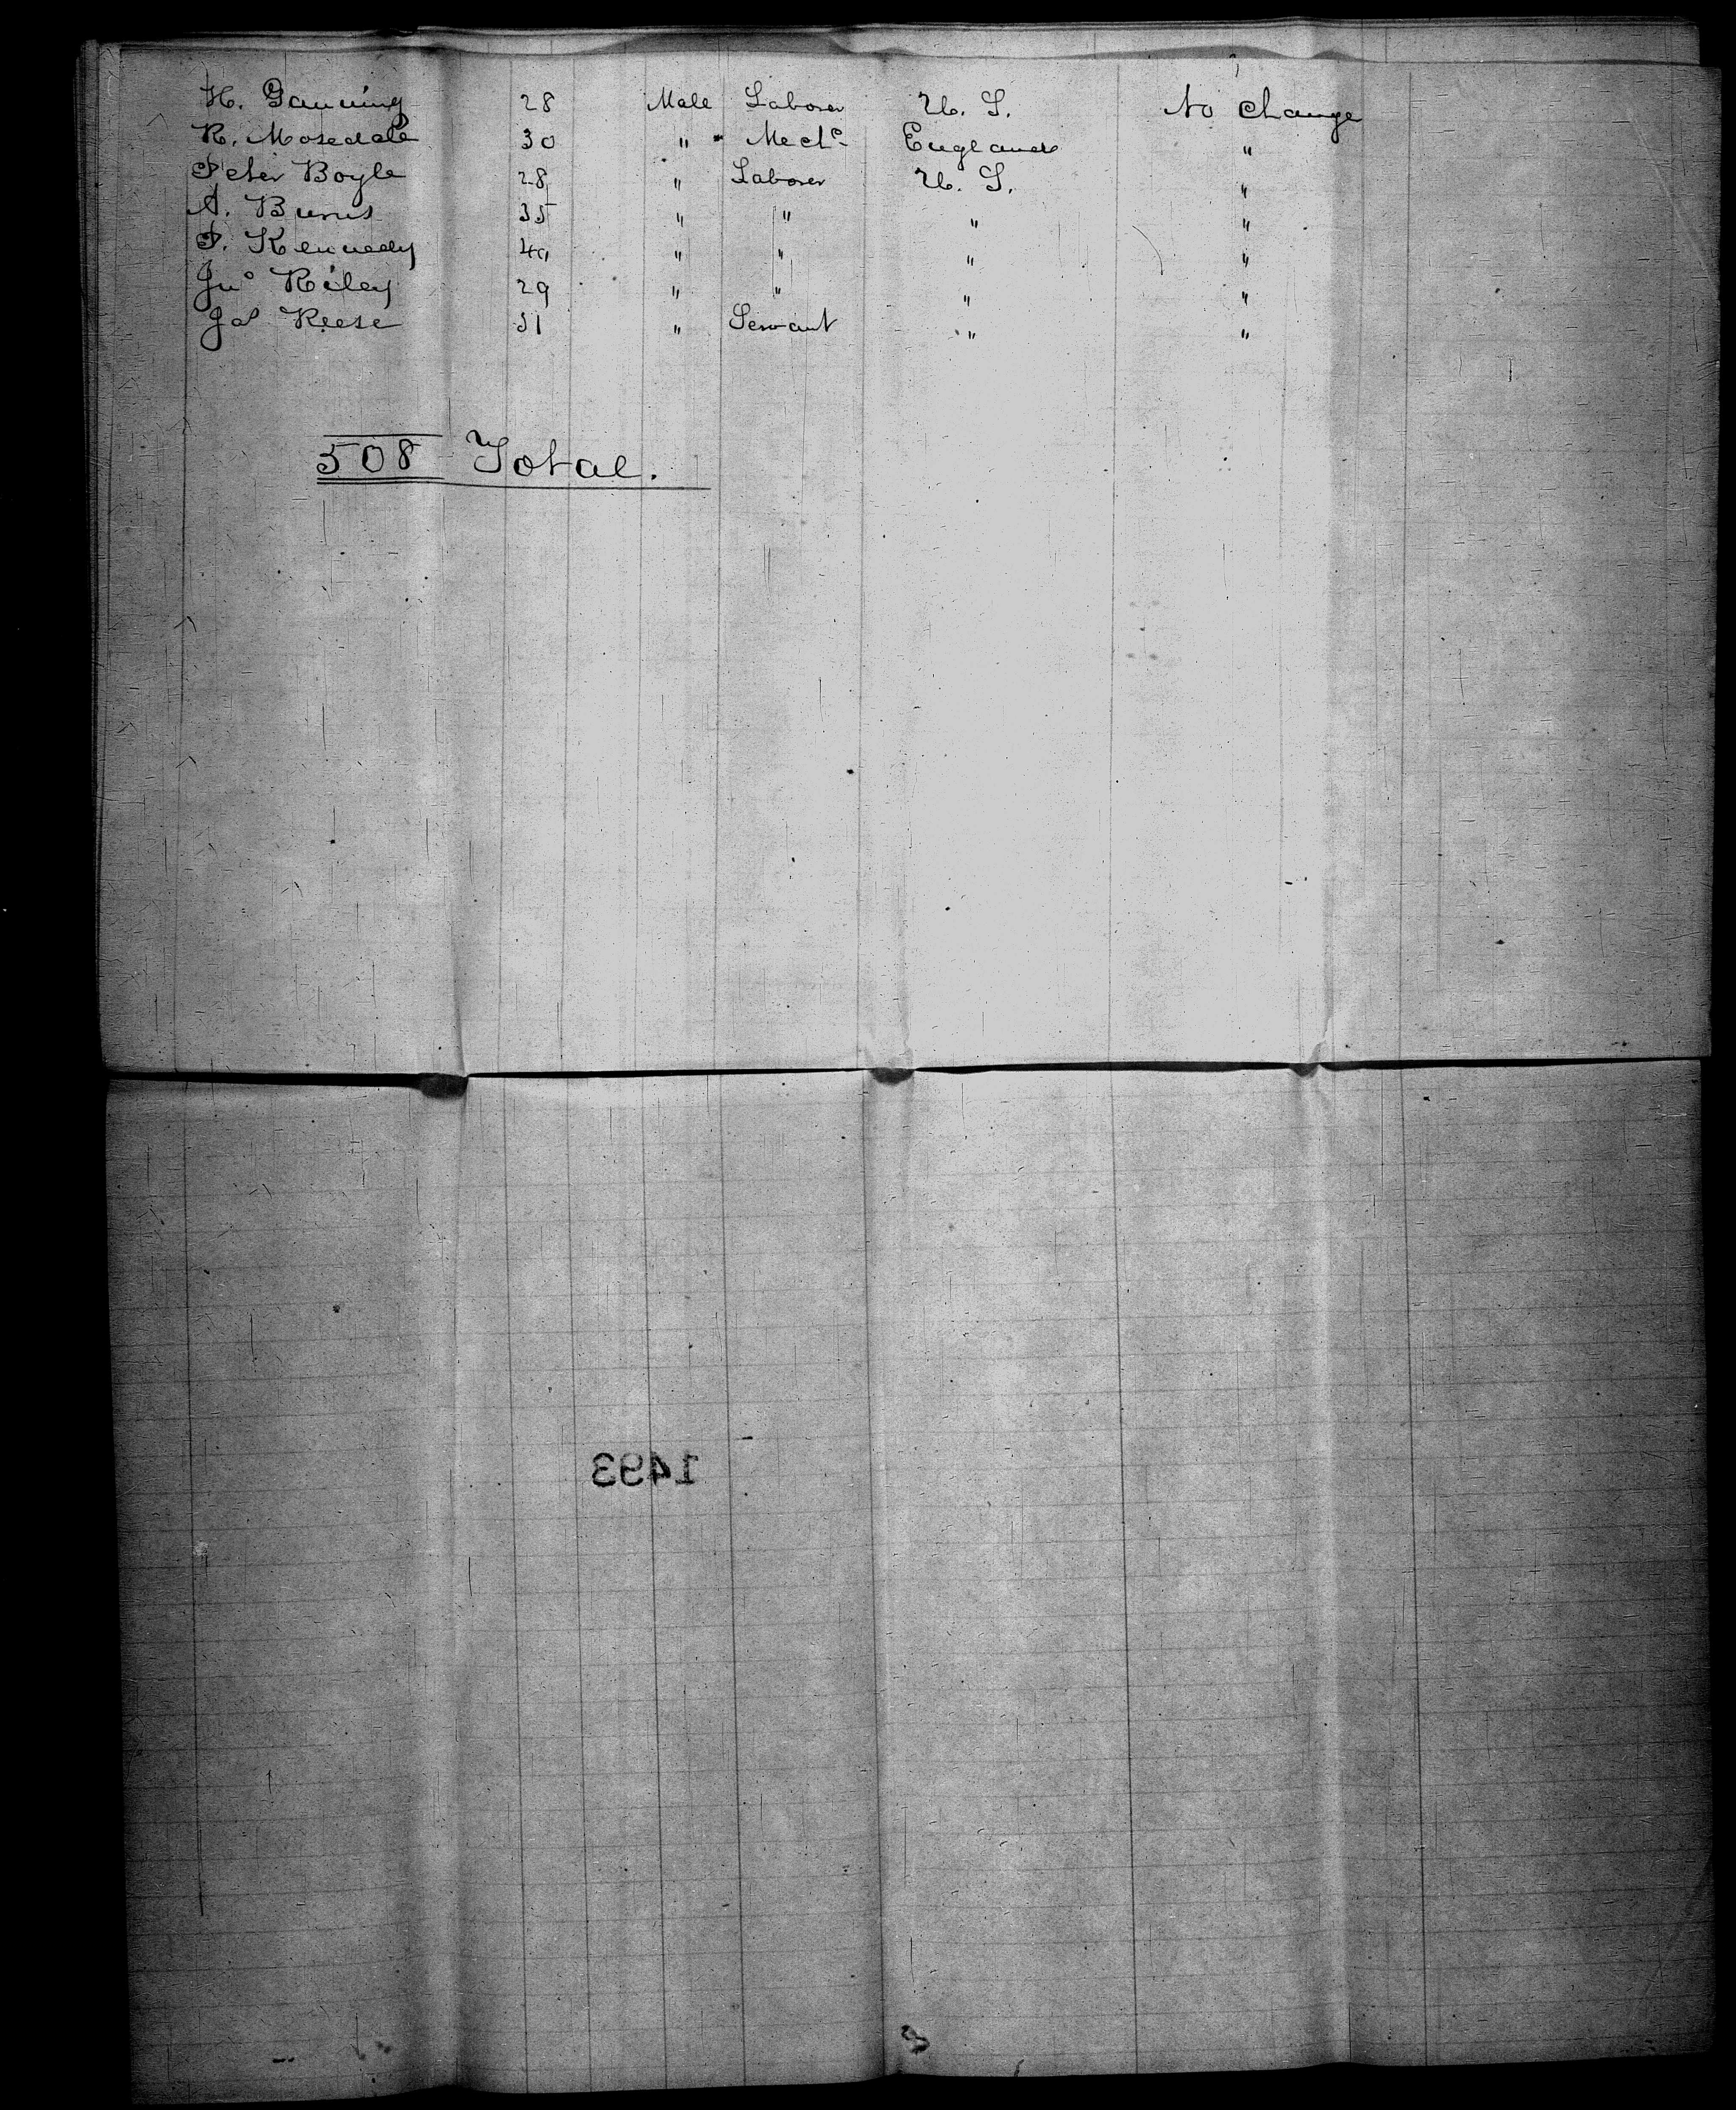 H. Ganning 28 Male Laborer U. S. No change
R. Mosedale 30 " Mech^c England "
Peter Boyle 28 " Laborer U. S. "
A. Burns 35 " " " "
P. Kennedy 40 " " " "
Jn° Riley 29 " " " "
Jas Reese 31 " Servant " "
508 Total.
1493